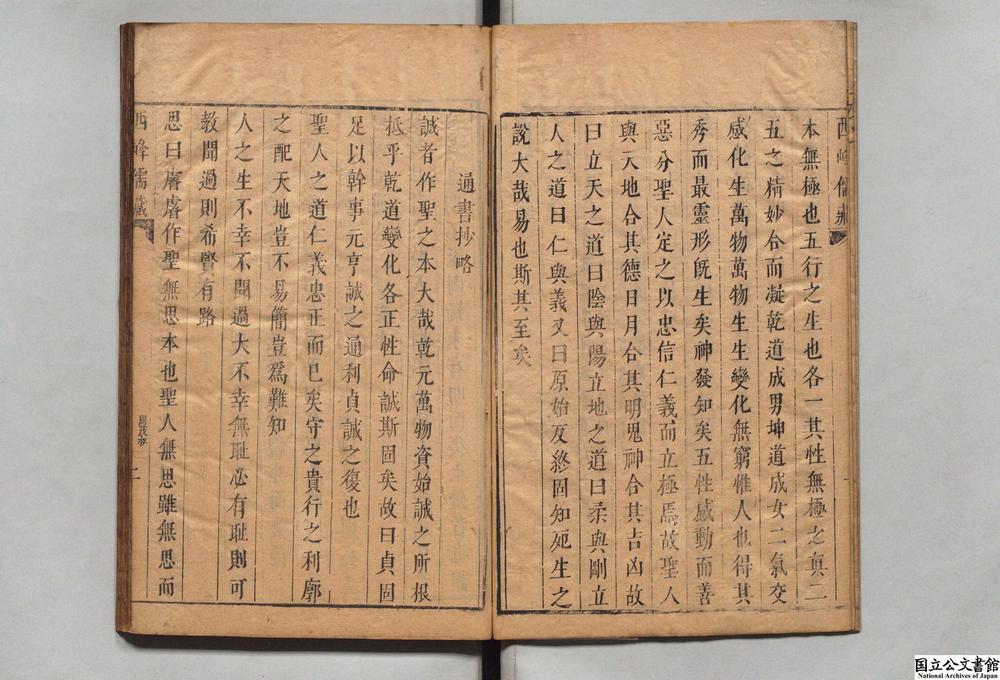 西峰儒藏
本無極也五行之生也各一其性無極之真二
五之精妙合而凝乾道成男坤道成女二氣交
感化生萬物萬物生生變化無窮惟人也得其
秀而最靈形既生矣神發知矣五性感動而善
惡分聖人定之以忠信仁義而立極焉故聖人
與天地合其德日月合其明鬼神合其吉凶故
曰立天之道曰陰與陽立地之道曰柔與剛立
人之道曰仁與義又曰原始反終固知死生之
說大哉易也斯其至矣
通書抄略
誠者作聖之本大哉乾元萬物資始誠之所根
抵乎乾道變化各正性命誠斯固矣故曰貞固
足以幹事元亨誠之通利貞誠之復也
聖人之道仁義忠正而已矣守之貴行之利廓
之配天地豈不易簡豈爲難知
人之生不幸不聞過大不幸無恥必有恥則可
教聞過則希賢有路
思曰睿睿作聖無思本也聖人無思雖無思而
西峰儒藏 周茂叔 二
国立公文書館
National Archives of Japan